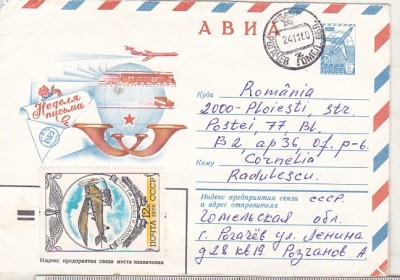 АВИА
РОГАЧЕВ ГОМЕЛ.
241180
2
Неделя
письма
Куда România
2000-Ploiesti, str.
Postei, 77 Bl.
B2 ap 36, Of. p-6.
Кому Cornelia
Radulescu
Индекс предприятия связи
и адрес отправителя
СССР.
Гомельская обл.
г. Рогачёв ул. Ленина
д 28 кв 19 Розчанов. А
ПОЧТА СССР
Индекс предприятия связи места назначения